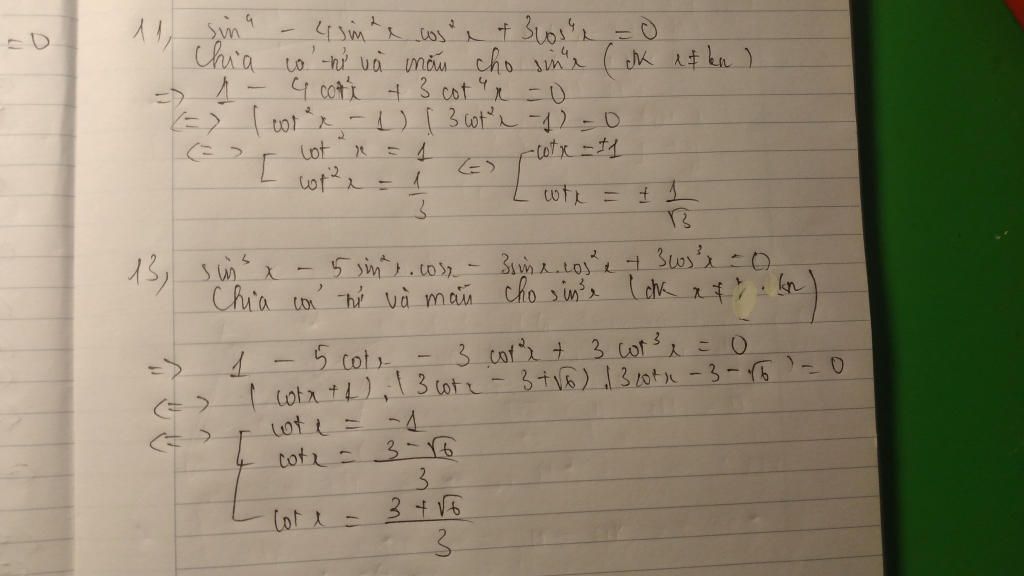 = 0
11, sin⁴ - 4sin²x cos²x + 3cos⁴x = 0
Chia cả tử và mẫu cho sin⁴x (đk x ≠ kπ)
=> 1 - 4cot²x + 3cot⁴x = 0
<=> (cot²x - 1)(3cot²x - 1) = 0
<=> [ cot²x = 1 <=> [ cotx = ±1
cot²x = 1/3 cotx = ± 1/√3
13, sin³x - 5sin²x.cosx - 3sinx.cos²x + 3cos³x = 0
Chia cả tử và mẫu cho sin³x (đk x ≠ kπ)
=> 1 - 5cotx - 3cot²x + 3cot³x = 0
<=> (cotx + 1).(3cotx - 3 + √6).(3cotx - 3 - √6) = 0
<=> [ cotx = -1
cotx = (3 - √6)/3
cotx = (3 + √6)/3